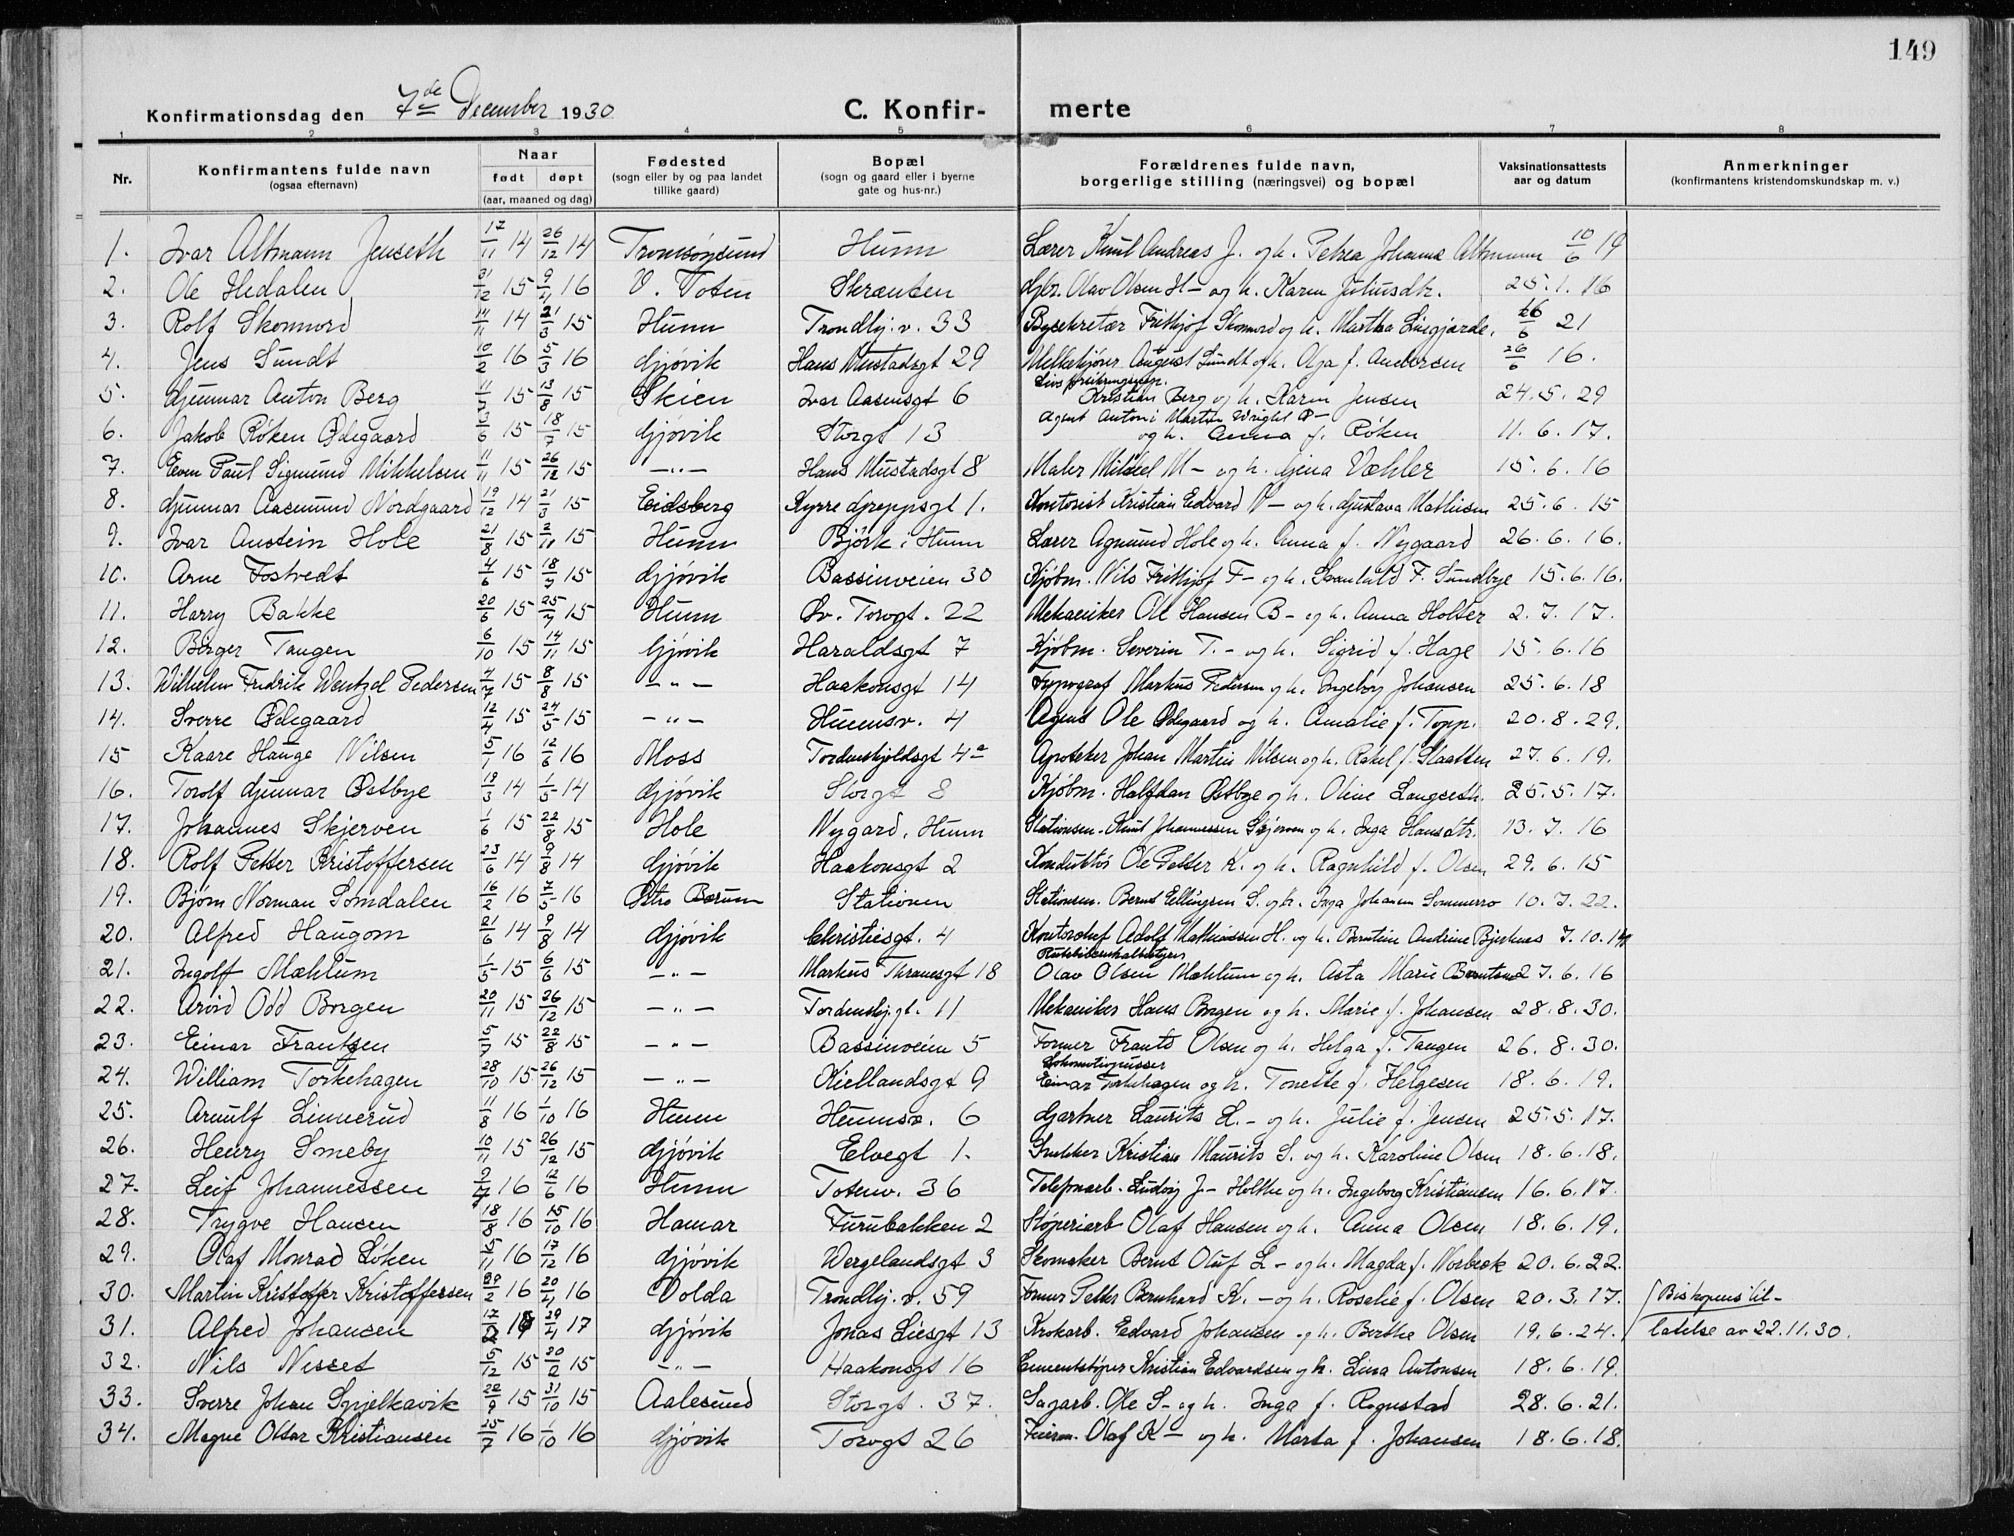 149
Konfirmationsdag den 7de December 1930 C. Konfirmerte
1 2 3 4 5 6 7 8
Nr. | Konfirmantens fulde navn (ogsaa efternavn) | Naar født døpt (aar, maaned og dag) | Fødested (sogn eller by og paa landet tillike gaard) | Bopæl (sogn og gaard eller i byerne gate og hus-nr.) | Forældrenes fulde navn, borgerlige stilling (næringsvei) og bopæl | Vaksinationsattests aar og datum | Anmerkninger (konfirmantens kristendomskundskap m. v.)
1. Ivar Altmann Jenseth 17/11 14 26/12 14 Tromsøysund Hunn Lærer Knut Andreas J. og h. Petrea Johanna Altmann 10/6 19
2. Ole Hedalen 31/12 15 9/4 16 V. Toten Skranten Gbr. Olav Olsen H- og h. Karen Juliusdtr. 25.1.16
3. Rolf Skonnord 14/11 14 21/3 15 Hunn Trondhj.v. 33 Bysekretær Frithjof Skonnord og h. Martha Lingjærde. 16/6 21
4. Jens Sundt 10/2 16 5/3 16 Gjøvik Hans Mustadsgt 29 August Sundt og h. Olga f. Andersen 26/6 16.
5. Gunnar Anton Berg 11/7 15 13/8 15 Skien Ivar Aasensgt 6 Kristian Berg og h. Karen Jensen 24.5.29
6. Jakob Røken Ødegaard 3/6 15 18/7 15 Gjøvik Storgt 13 Agent Anton Martin Wright Ø- og h. Anna f. Røken 11.6.17.
7. Even Paul Sigmund Mikkelsen 11/11 15 26/12 15 -"- Hans Mustadsgt 8 Maler Mikkel M- og h. Gina Væhler 15.6.16
8. Gunnar Aasmund Nordgaard 19/12 14 21/3 15 Eidsberg Kyrre Greppsgt 1. Kontorist Kristian Edvard N- og h. Gustava Mathisen 25.6.15
9. Ivar Austein Hole 21/8 15 2/11 15 Hunn Bjørk i Hunn Lærer Agmund Hole og h. Anna f. Nygaard 26.6.16.
10. Arne Fostvedt 4/6 15 18/7 15 Gjøvik Bassinveien 30 Kjøbm. Nils Frithjof F- og h. F. Sundbye 15.6.16.
11. Harry Bakke 20/6 15 25/7 15 Hunn Øv. Torvgt. 22 Mekaniker Ole Hansen B- og h. Anna Holter 2.7.17.
12. Birger Tangen 6/10 15 14/11 15 Gjøvik Haraldsgt 7 Kjøbm. Severin T.- og h. Sigrid f. Hage 15.6.16
13. Wilhelm Fredrik Wentzel Pedersen 4/7 15 8/8 15 -"- Haakonsgt 14 Typograf Markus Pedersen og h. Ingeborg Johansen 25.6.18
14. Sverre Ødegaard 12/4 15 24/5 15 -"- Hunnsv. 4 Agent Ole Ødegaard og h. Amalie f. Topp. 20.8.29.
15 Kaare Hauge Nilsen 5/1 16 12/6 16 Moss Tordenskjoldsgt 4a Apoteker Johan Martin Nilsen og h. Rakel f. Slaatten 27.6.19.
16. Torolf Gunnar Østbye 19/3 14 1/5 14 Gjøvik Storgt 8 Kjøbm. Halfdan Østbye og h. Oline Langseth. 25.5.17.
17. Johannes Skjerven 1/6 15 22/8 15 Hole Nygard, Hunn Stationsm. Knut Johannessen Skjerven og h. Inga Hansdtr. 13.7.16
18. Rolf Petter Kristoffersen 23/6 14 9/8 14 Gjøvik Haakonsgt 2 Konduktør Ole Petter K. og h. Ragnhild f. Olsen 29.6.15
19. Bjørn Norman Sømdalen 16/2 16 7/5 16 Østre Bærum Stationen Stationsm. Bernt Ellingsen S. og h. Inga Johansen Sommerro 10.7.22.
20. Alfred Haugom 21/6 14 9/8 14 Gjøvik Christiesgt. 4 Kontorchef Adolf Mathiassen H. og h. Berntine Andrine Bjerknes 7.10.14
21. Ingolf Mæhlum 1/5 15 6/6 15 -"- Markus Thranesgt 18 Olav Olsen Mæhlum og h. Asta Marie Berntsen 27.6.16
22. Arvid Odd Borgen 20/11 15 26/12 15 -"- Tordenskj.gt. 11 Mekaniker Hans Borgen og h. Marie f. Johansen 28.8.30.
23. Einar Frantzen 5/7 15 22/8 15 -"- Bassinveien 5 Former Frants Olsen og h. Helga f. Tangen 26.8.30.
24. William Torkehagen 28/10 15 26/12 15 -"- Kiellandsgt 9 Lokomotivpusser Einar Torkehagen og h. Tonette f. Helgesen 18.6.19.
25. Arnulf Linnerud 11/8 16 1/10 16 Hunn Hunnsv. 6 Gartner Laurits L.- og h. Julie f. Jensen 25.5.17.
26. Henry Smeby 10/11 15 26/12 15 Gjøvik Elvegt 1. Snekker Kristian Maurits S. og h. Karoline Olsen 18.6.18.
27. Leif Johannessen 9/4 16 12/6 16 Hunn Totenv. 36 Telefonarb. Ludvig J- Holthe og h. Ingeborg Kristiansen 16.6.17.
28. Trygve Hansen 18/8 16 15/10 16 Hamar Furubakken 2 Støperiarb Olaf Hansen og h. Anna Olsen 18.6.19.
29. Olaf Monrad Løken 15/11 16 17/12 16 Gjøvik Wergelandsgt 3 Skomaker Bernt Oluf L- og h. Magda f. Norbeck 20.6.22.
30. Martin Kristoffer Kristoffersen 29/2 16 20/4 16 Volda Trondhj.v. 59 Former Petter Bernhard K.- og h. Roselie f. Olsen 20.3.17. Biskopens til-
31. Alfred Johansen 17/2 17 29/4 17 Gjøvik Jonas Liesgt 13 Krokarb. Edvard Johansen og h. Berthe Olsen 19.6.24. latelse av 22.11.30.
32. Nils Nesset 5/12 15 20/2 15 -"- Haakonsgt 16 Cementstøper Kristian Edvardsen og h. Lina Antonsen 18.6.19.
33. Sverre Johan Spjelkavik 22/9 15 31/10 15 Aalesund Storgt. 37. Sagarb. Ole S- og h. Inga f. Rognstad 28.6.21.
34. Magne Oskar Kristiansen 25/7 16 1/10 16 Gjøvik Torvgt 26 Olaf K- og h. Marta f. Johansen 18.6.18.